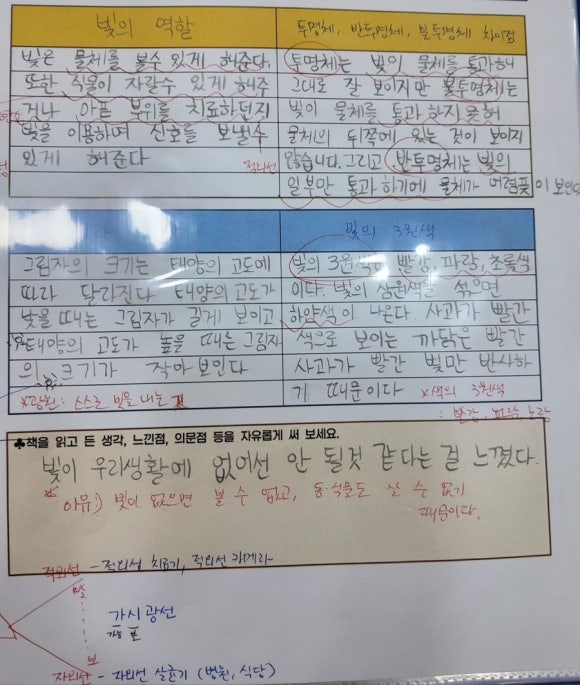 빛의 역할
빛은 물체를 볼수 있게 해준다.
또한 식물이 자랄수 있게 해주
거나 아픈 부위를 치료하던지
빛을 이용하며 신호를 보낼수
있게 해준다
적외선
투명체, 반투명체, 불투명체 차이점
투명체는 빛이 물체를 통과해
그대로 잘 보이지만 불투명체는
빛이 물체를 통과 하지 못해
물체의 뒤쪽에 있는 것이 보이지
않습니다. 그리고 반투명체는 빛의
일부만 통과 하기에 물체가 어렴풋이 보인다
그림자의 크기는 태양의 고도에
따라 달라진다 태양의 고도가
낮을 때는 그림자가 길게 보이고
태양의 고도가 높을 때는 그림자
의 크기가 작아 보인다
*광원: 스스로 빛을 내는 것
빛의 3원색
빛의 3원색은 빨강, 파랑, 초록색
이다. 빛의 삼원색을 섞으면
하얀색이 나온다. 사과가 빨간
색으로 보이는 까닭은 빨간
사과가 빨간 빛만 반사하
기 때문이다 *색의 3원색
: 빨강, 파랑, 노랑
♣책을 읽고 든 생각, 느낀점, 의문점 등을 자유롭게 써 보세요.
빛이 우리생활에 없어선 안 될것 같다는 걸 느꼈다.
* 이유:) 빛이 없으면 볼 수 없고, 동·식물도 살 수 없기
때문이다.
적외선 - 적외선 치료기, 적외선 카메라
빨
가시광선
보
자외선 - 자외선 살균기 (병원, 식당)